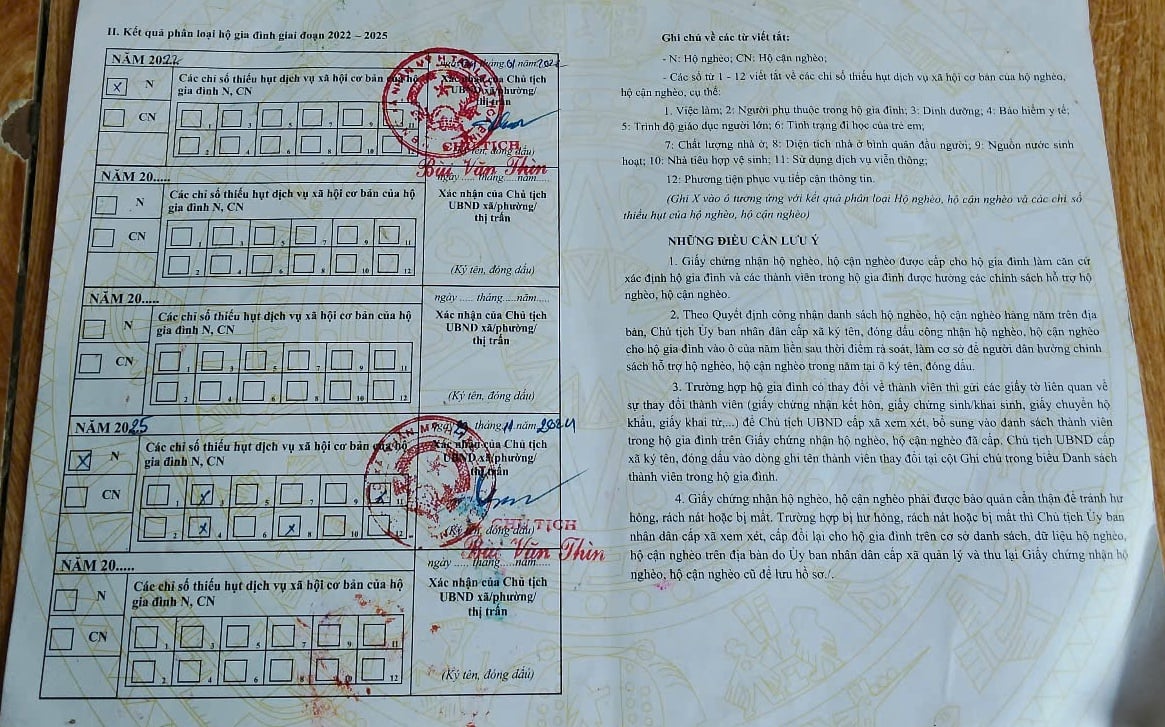 II. Kết quả phân loại hộ gia đình giai đoạn 2022 – 2025
NĂM 2022
N
CN
Các chỉ số thiếu hụt dịch vụ xã hội cơ bản của hộ
gia đình N, CN
1 3 5 7 9
2 4 6 8 10
tháng 01 năm 2022
Xác nhận của Chủ tịch
UBND xã/phường/
thị trấn
CHỦ TỊCH
Bùi Văn Thìn
NĂM 20.....
N
CN
Các chỉ số thiếu hụt dịch vụ xã hội cơ bản của hộ
gia đình N, CN
1 3 5 7 9 11
2 4 6 8 10 12
ngày ..... tháng.....năm.....
Xác nhận của Chủ tịch
UBND xã/phường/
thị trấn
(Ký tên, đóng dấu)
NĂM 20.....
N
CN
Các chỉ số thiếu hụt dịch vụ xã hội cơ bản của hộ
gia đình N, CN
1 3 5 7 9 11
2 4 6 8 10 12
ngày ..... tháng.....năm.....
Xác nhận của Chủ tịch
UBND xã/phường/
thị trấn
(Ký tên, đóng dấu)
NĂM 2025
X N
CN
Các chỉ số thiếu hụt dịch vụ xã hội cơ bản của hộ
gia đình N, CN
1 X 3 5 7 9 11
2 X 4 6 X 8 10 12
tháng 11 năm 2024
Xác nhận của Chủ tịch
UBND xã/phường/
thị trấn
(Ký tên, đóng dấu)
CHỦ TỊCH
Bùi Văn Thìn
NĂM 20.....
N
CN
Các chỉ số thiếu hụt dịch vụ xã hội cơ bản của hộ
gia đình N, CN
1 3 5 7 9 11
2 4 6 8 10 12
ngày ..... tháng.....năm.....
Xác nhận của Chủ tịch
UBND xã/phường/
thị trấn
(Ký tên, đóng dấu)
Ghi chú về các từ viết tắt:
- N: Hộ nghèo; CN: Hộ cận nghèo;
- Các số từ 1 - 12 viết tắt về các chỉ số thiếu hụt dịch vụ xã hội cơ bản của hộ nghèo,
hộ cận nghèo, cụ thể:
1. Việc làm; 2: Người phụ thuộc trong hộ gia đình; 3: Dinh dưỡng; 4: Bảo hiểm y tế;
5: Trình độ giáo dục người lớn; 6: Tình trạng đi học của trẻ em;
7: Chất lượng nhà ở; 8: Diện tích nhà ở bình quân đầu người; 9: Nguồn nước sinh
hoạt; 10: Nhà tiêu hợp vệ sinh; 11: Sử dụng dịch vụ viễn thông;
12: Phương tiện phục vụ tiếp cận thông tin.
(Ghi X vào ô tương ứng với kết quả phân loại Hộ nghèo, hộ cận nghèo và các chỉ số
thiếu hụt của hộ nghèo, hộ cận nghèo)
NHỮNG ĐIỀU CẦN LƯU Ý
1. Giấy chứng nhận hộ nghèo, hộ cận nghèo được cấp cho hộ gia đình làm căn cứ
xác định hộ gia đình và các thành viên trong hộ gia đình được hưởng các chính sách hỗ trợ hộ
nghèo, hộ cận nghèo.
2. Theo Quyết định công nhận danh sách hộ nghèo, hộ cận nghèo hàng năm trên địa
bàn, Chủ tịch Ủy ban nhân dân cấp xã ký tên, đóng dấu công nhận hộ nghèo, hộ cận nghèo
cho hộ gia đình vào ô của năm liền sau thời điểm rà soát, làm cơ sở để người dân hưởng chính
sách hỗ trợ hộ nghèo, hộ cận nghèo trong năm tại ô ký tên, đóng dấu.
3. Trường hợp hộ gia đình có thay đổi về thành viên thì gửi các giấy tờ liên quan về
sự thay đổi thành viên (giấy chứng nhận kết hôn, giấy chứng sinh/khai sinh, giấy chuyển hộ
khẩu, giấy khai tử,...) để Chủ tịch UBND cấp xã xem xét, bổ sung vào danh sách thành viên
trong hộ gia đình trên Giấy chứng nhận hộ nghèo, hộ cận nghèo đã cấp. Chủ tịch UBND cấp
xã ký tên, đóng dấu vào dòng ghi tên thành viên thay đổi tại cột Ghi chú trong biểu Danh sách
thành viên trong hộ gia đình.
4. Giấy chứng nhận hộ nghèo, hộ cận nghèo phải được bảo quản cẩn thận để tránh hư
hỏng, rách nát hoặc bị mất. Trường hợp bị hư hỏng, rách nát hoặc bị mất thì Chủ tịch Ủy ban
nhân dân cấp xã xem xét, cấp đổi lại cho hộ gia đình trên cơ sở danh sách, dữ liệu hộ nghèo,
hộ cận nghèo trên địa bàn do Ủy ban nhân dân cấp xã quản lý và thu lại Giấy chứng nhận hộ
nghèo, hộ cận nghèo cũ để lưu hồ sơ./.